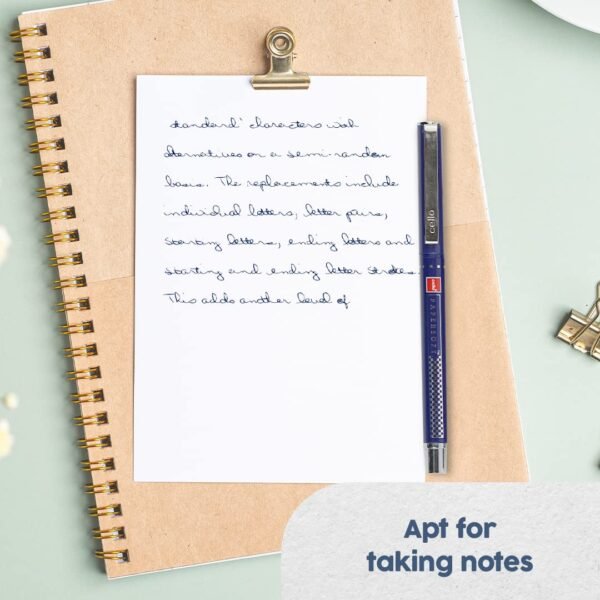 standard' characters with
alternatives on a semi-random
basis. The replacements include
individual letters, letter pairs,
starting letters, ending letters and
starting and ending letter strokes.
This adds another level of
cello
cello
PAPERSOFT
Apt for
taking notes